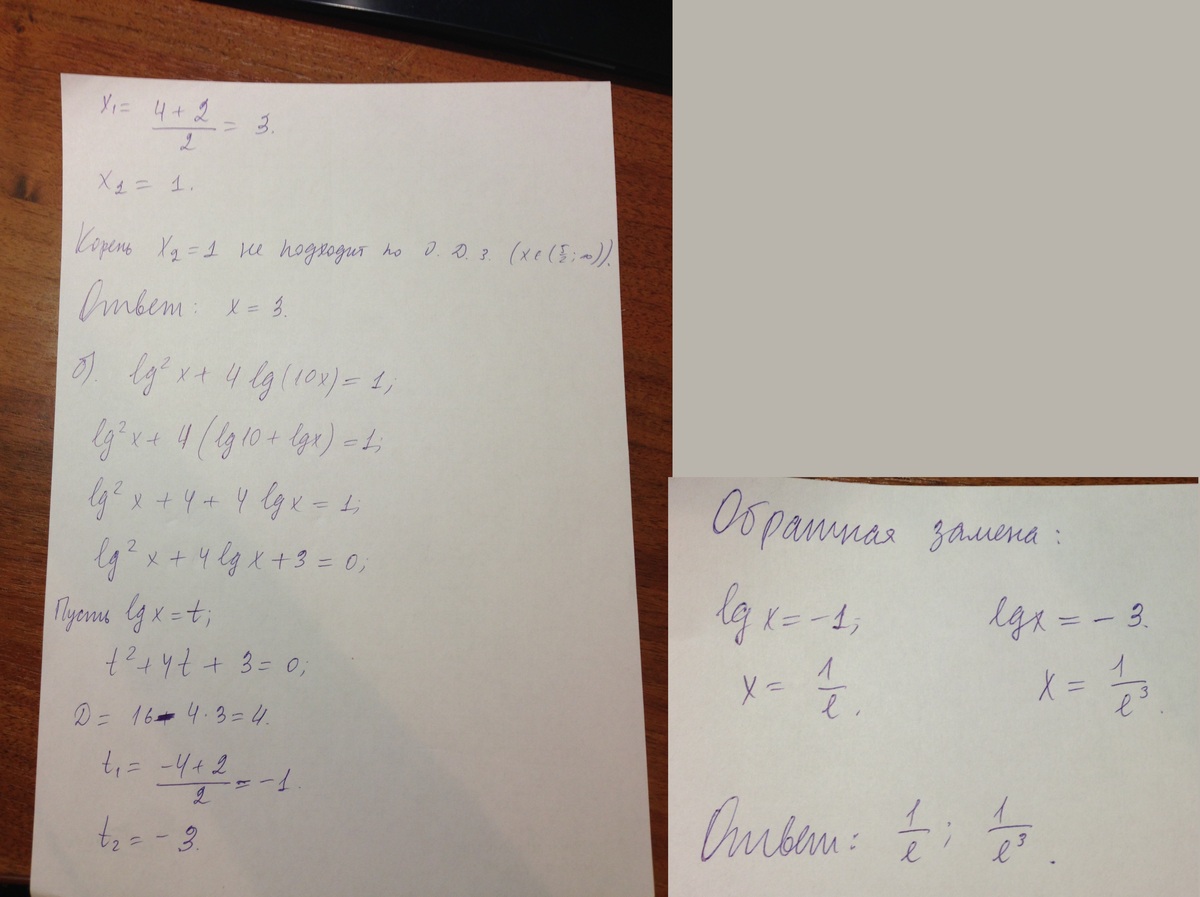 x₁ = (4 + 2)/2 = 3.
x₂ = 1.
Корень x₂ = 1 не подходит по О. Д. З. (x ∈ (5/2; ∞)).
Ответ: x = 3.
б). lg² x + 4 lg(10x) = 1;
lg² x + 4 (lg10 + lgx) = 1;
lg² x + 4 + 4 lgx = 1;
lg² x + 4 lg x + 3 = 0;
Пусть lg x = t;
t² + 4t + 3 = 0;
D = 16 - 4·3 = 4.
t₁ = (-4 + 2)/2 = -1.
t₂ = -3.
Обратная замена:
lg x = -1; lgx = -3.
x = 1/e. x = 1/e³.
Ответ: 1/e; 1/e³.